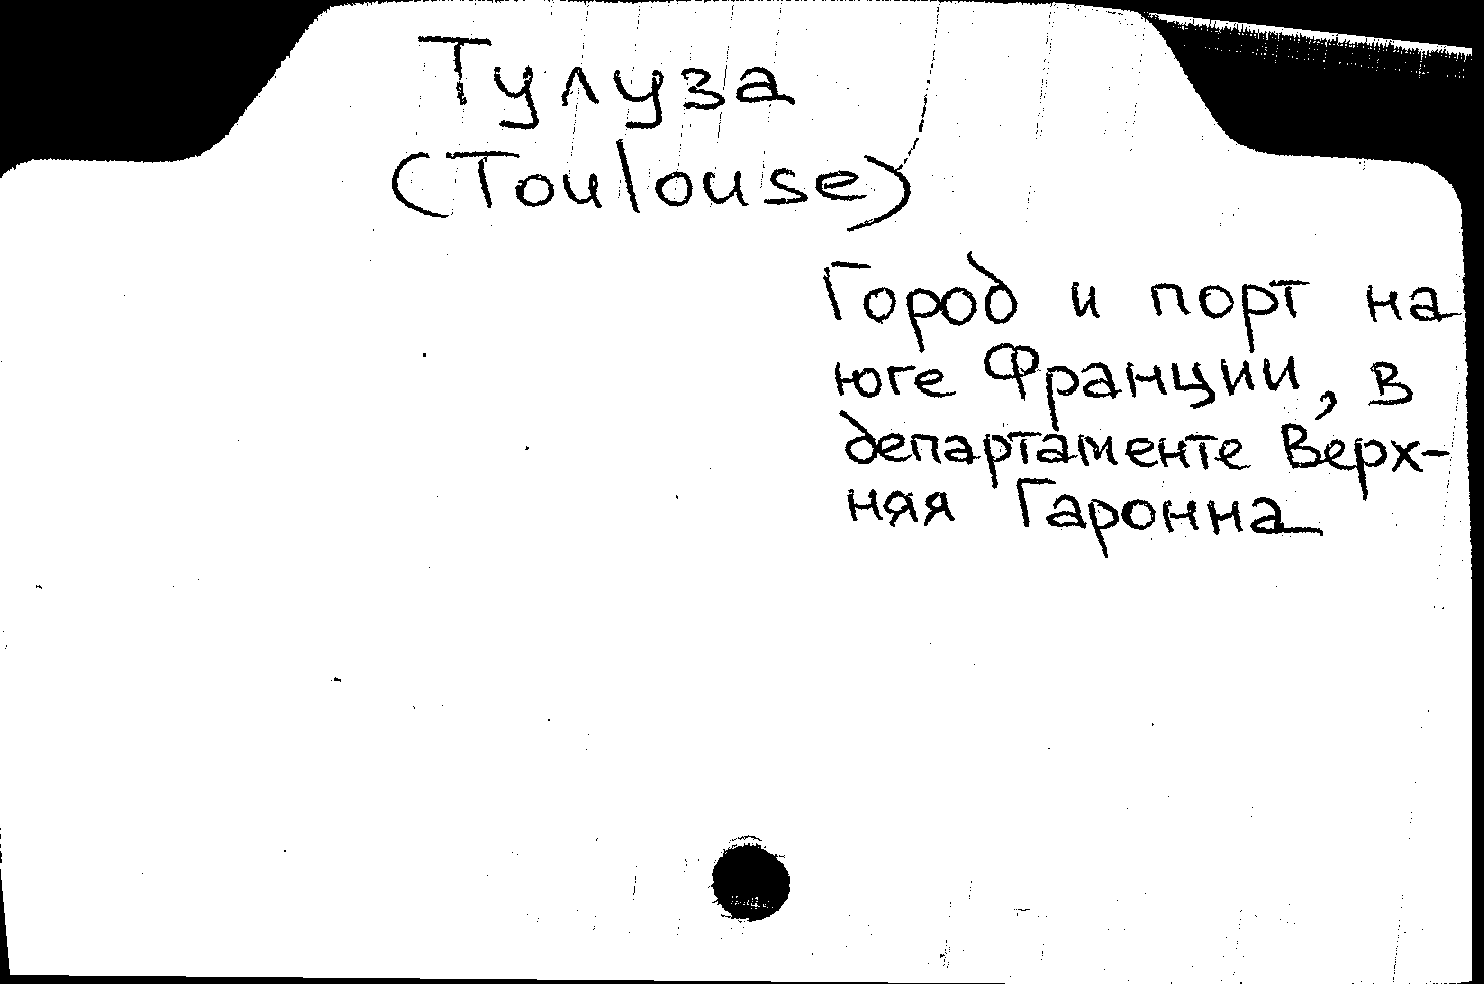 Тулуза
(Toulouse)
Город и порт на
юге Франции, в
департаменте Верх-
няя Гаронна